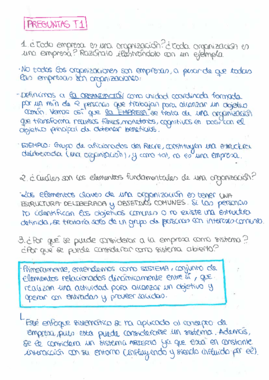 PREGUNTAS T1
1. ¿Toda empresa es una organización? ¿Toda organización es
una empresa? Razónalo ilustrándolo con un ejemplo
No todas las organizaciones son empresas, a pesar de que todas
las empresas son organizaciones.
Definimos a la ORGANIZACIÓN como unidad coordinada formada
por un mín de 2 personas que trabajan para alcanzar un objetivo
común. Vemos así que la EMPRESA se trata de una organización
que transforma recursos
objetivo principal de obtener beneficios.
EJEMPLO: Grupo de aficionados del Betis, constituyen una estructura
deliberada (una organización), y como tal, no es una empresa.
2. ¿Cuáles son los elementos fundamentales de una organización?
Los elementos claves de una organización es tener UNA
ESTRUCTURA DELIBERADA y OBJETIVOS COMUNES. Si las personas
no identifican los objetivos comunes o no existe una estructura
definida, se trataría solo de un grupo de personas con interés común.
3. ¿Por qué se puede considerar a la empresa como sistema?
¿Por qué se puede considerar como sistema abierto?
Primeramente, entendemos como SISTEMA, conjunto de
elementos relacionados dinámicamente entre sí, que
realizan una actividad para alcanzar un objetivo y
operar con entradas y proveer salidas.
Este enfoque sistemático se ha aplicado al concepto de
empresa, pues esta puede considerarse un sistema. Además,
se le considera un sistema ABIERTO ya que está en constante
interacción con su entorno (influyendo y siendo influido por él)